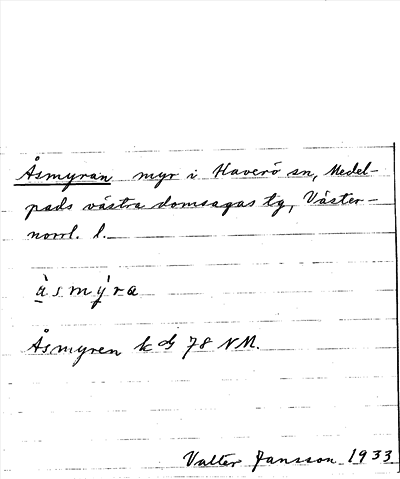 Åsmyran myr i Haverö sn, Medel-
pads västra domsagas tg, Väster-
norrl. l.
ù̱smýra
Åsmyren k dg 78 NM.
Valter Jansson 1933